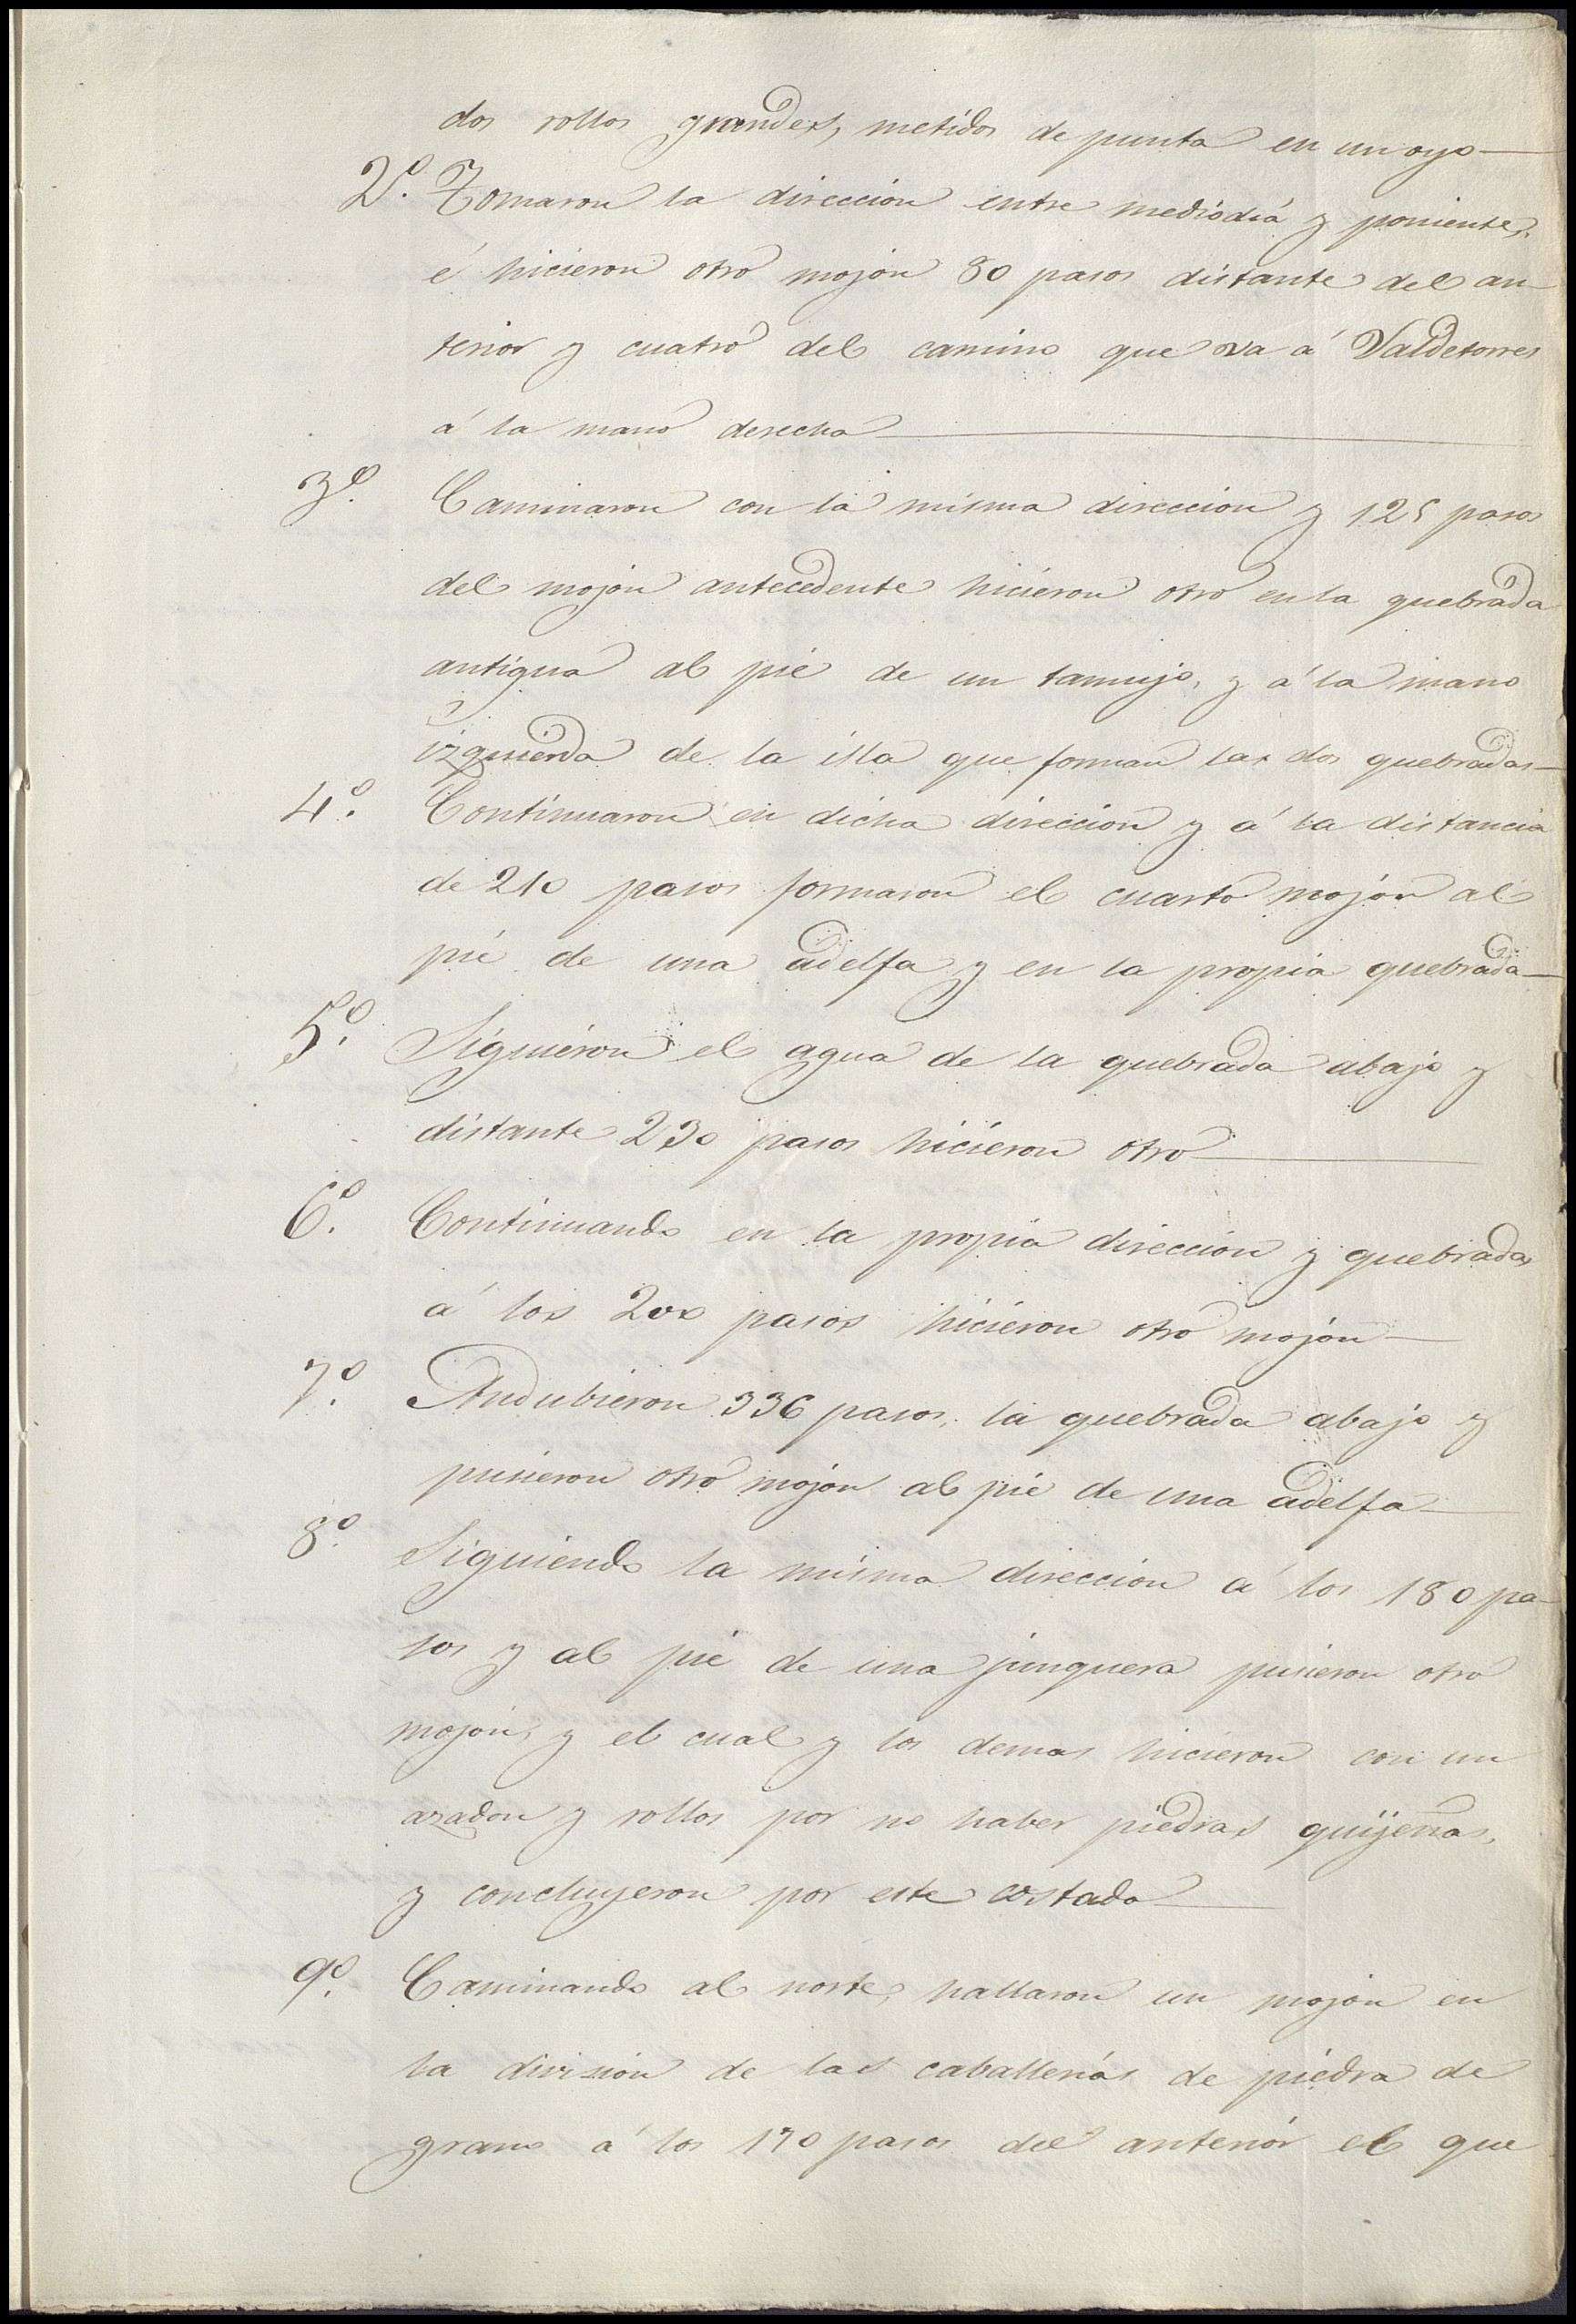 dos rollos grandes, metidos de punta en un oyo—
2º. Tomaron la direccion entre mediodía y poniente,
é hicieron otro mojón 80 pasos distante del an-
terior y cuatro del camino que va á Valdetorres
á la mano derecha—
3º. Caminaron con la misma direccion y 125 pasos
del mojón antecedente hicieron otro en la quebrada
antigua al pié de un tamujo, y á la mano
izquierda de la isla que forman las dos quebradas—
4º. Continuaron en dicha direccion y á la distancia
de 210 pasos formaron el cuarto mojón al
pié de una adelfa y en la propia quebrada—
5º. Siguieron el agua de la quebrada abajo y
distante 230 pasos hicieron otro—
6º. Continuando en la propia direccion y quebrada
á los 200 pasos hicieron otro mojón—
7º. Andubieron 336 pasos, la quebrada abajo y
pusieron otro mojón al pié de una adelfa—
8º. Siguiendo la misma direccion á los 180 pa-
sos y al pié de una junquera pusieron otro
mojón, y el cual y los demas hicieron con un
azadon y rollos por no haber piedras guijeñas,
y concluyeron por este costado—
9º. Caminando al norte, hallaron un mojón en
la division de las caballerías de piedra de
grano á los 170 pasos del anterior el que